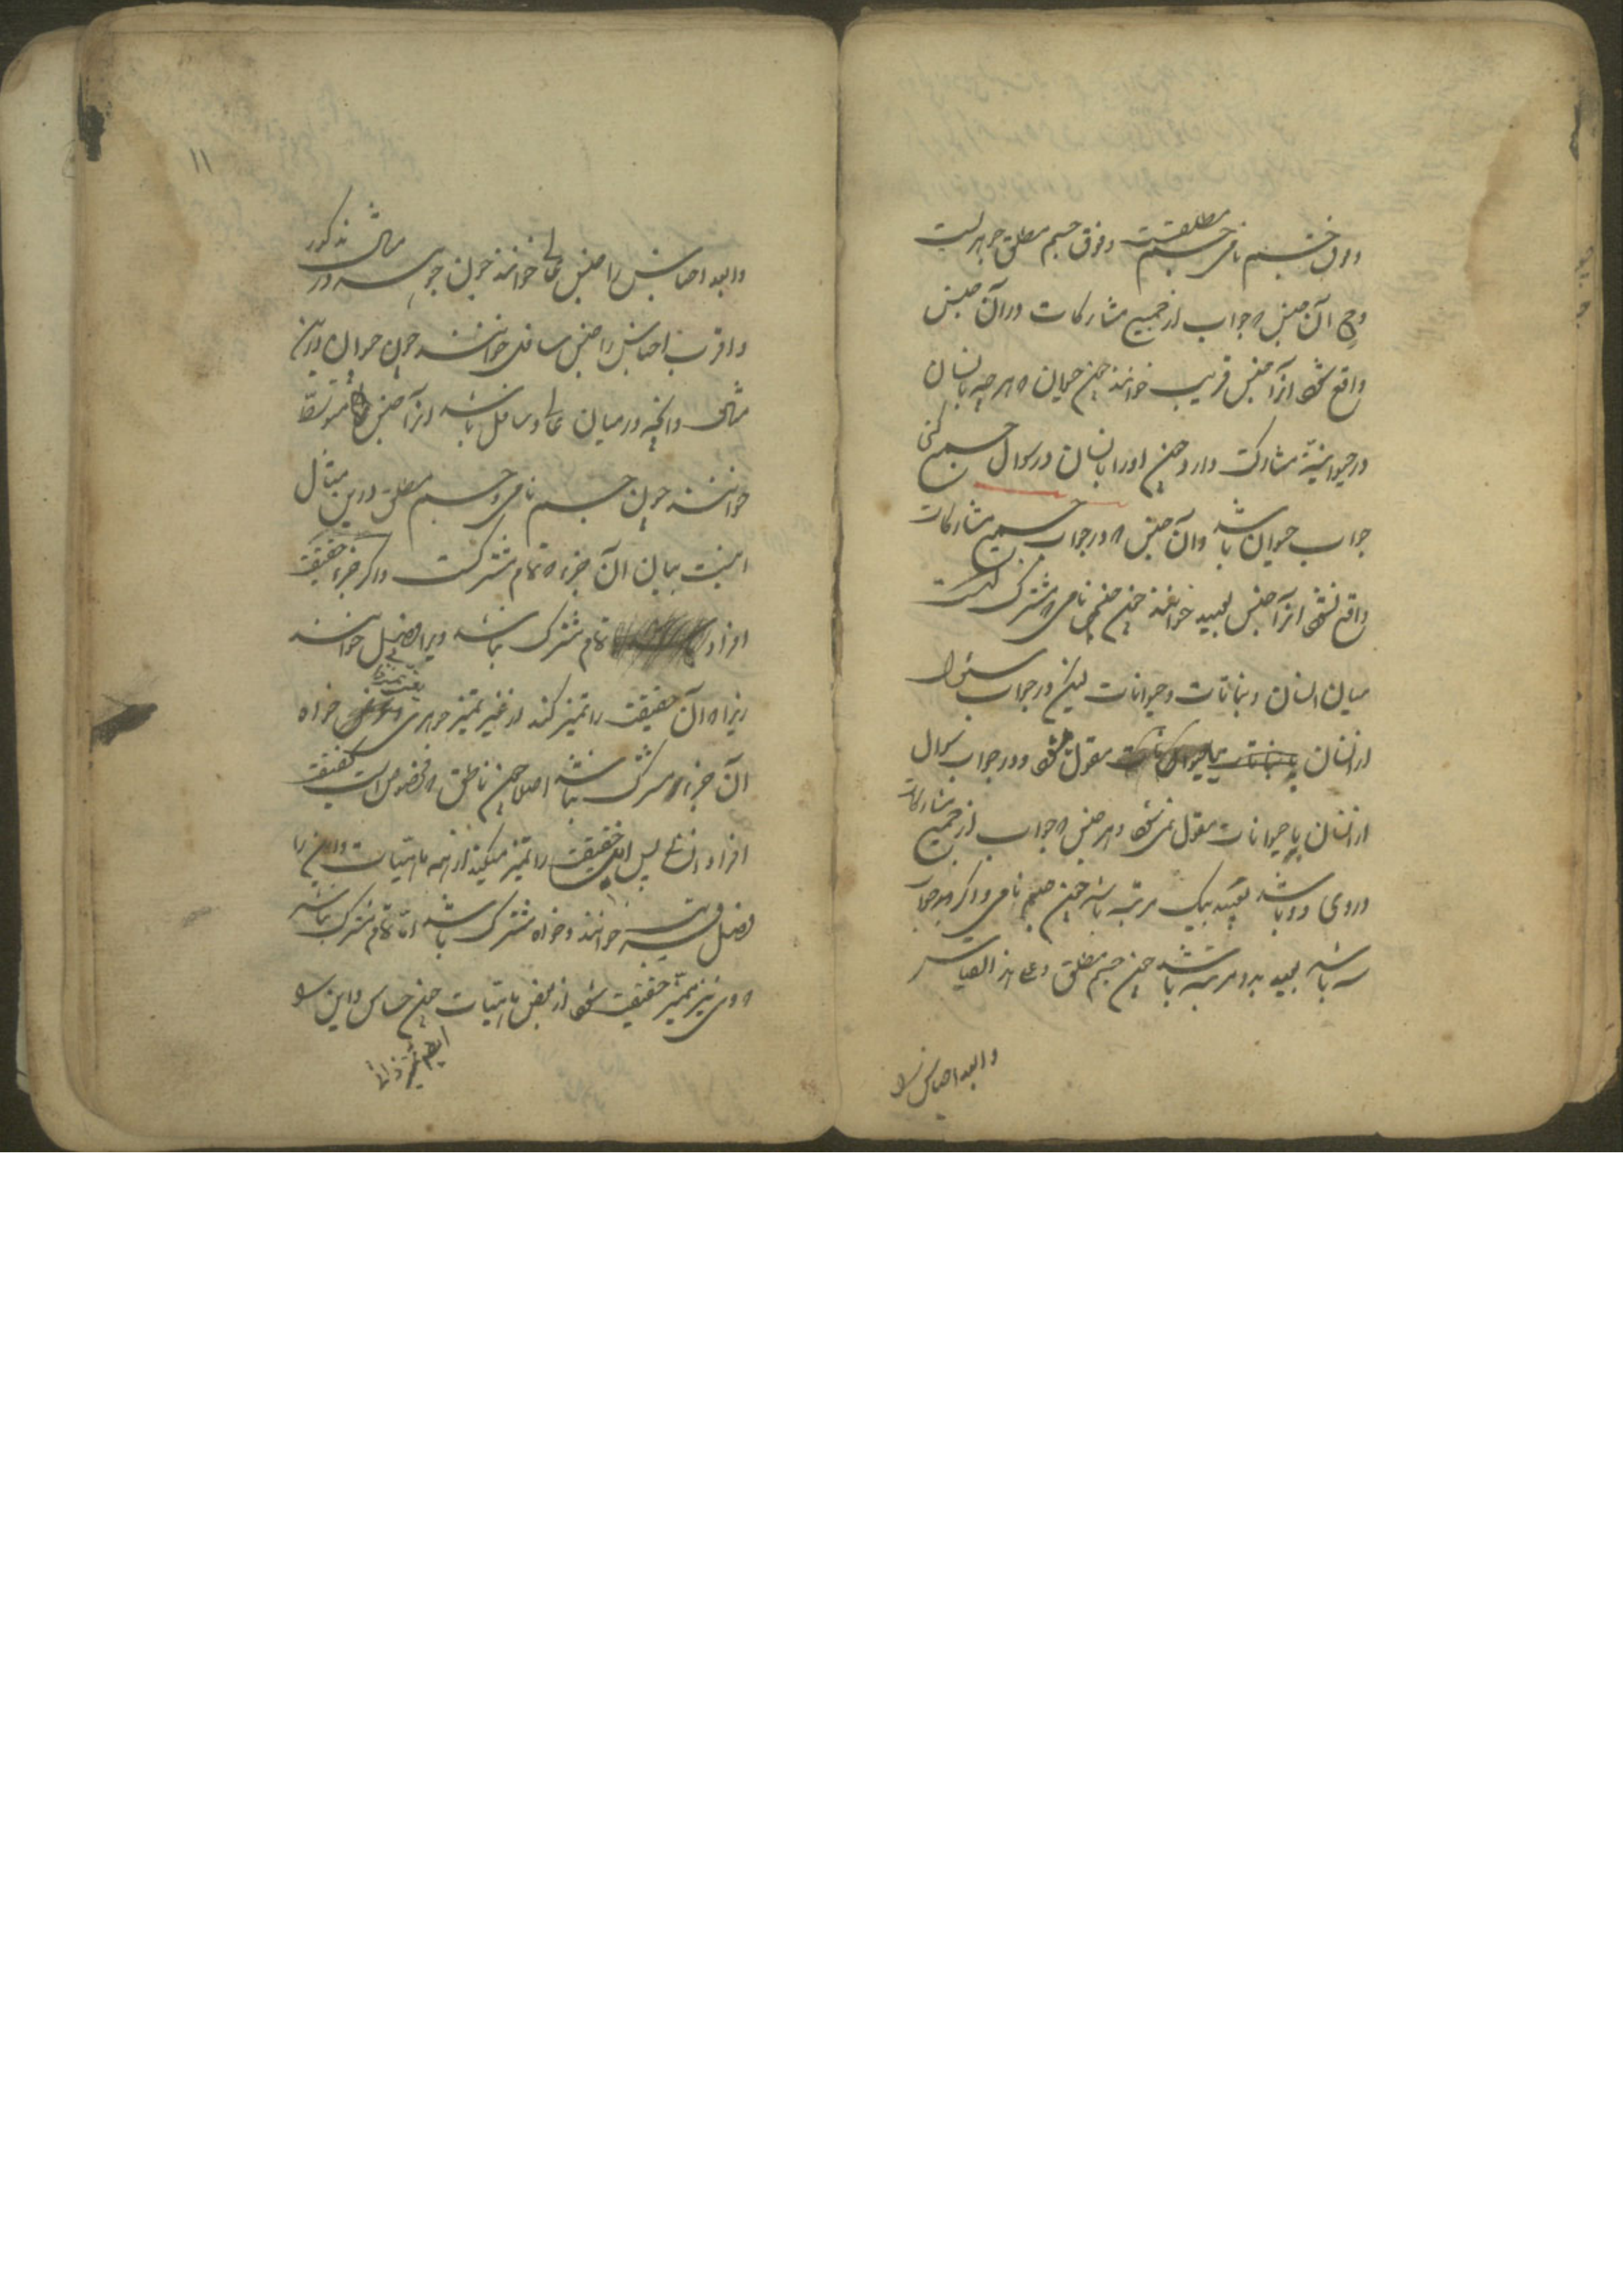 وفوق جسم نامی جسم مطلقست وفوق جسم مطلق جوهرست
آن جنس ه جواب از جمیع مشارکات در آن جنس
واقع شود آنرا جنس قریب خوانند چون حیوان ه هر چه با انسان
در حیوانیة مشارکت دارد چون او را با انسان در سوال جمع کنی
جواب حیوان باشد وآن جنس ه در جواب جمیع مشارکات
واقع نشود آنرا جنس بعید خوانند چون جسم نامی ه مشترکست
میان انسان ونباتات وحیوانات لیکن در جواب سئوال
از انسان با نباتات مقول شود ودر جواب سوال
از انسان با حیوانات مقول نمی شود وهر جنس ه جواب از جمیع مشارکات
در وی دو باشد بعید بیک مرتبه باشد چون جسم نامی واگر جواب
سه باشد بعید بدو مرتبه باشد چون جسم مطلق وعلی هذا القیاس
وابعد اجناس را
۱۱
وابعد اجناس را جنس عالی خوانند چون جوهر در مثال مذکور
واقرب اجناس را جنس سافل خوانند چون حیوان درین
مثال وآنچه در میان عالی وسافل باشد آنرا جنس متوسط
خوانند چون جسم نامی وجسم مطلق درین مثال
اینست بیان آن جزء ه تمام مشترکست واگر جزء حقیقت
افراد تمام مشترک نباشد ویرا فصل خوانند
زیرا ه آن حقیقت را تمیز کند از غیر تمیز جوهری خواه
آن جزء مشترک نباشد اصلا چون ناطق ه مخصوص است بحقیقت
افراد انسان پس این حقیقت را تمیز میکند از همه ماهیات واین را
فصل قریب خوانند وخواه مشترک باشد اما تمام مشترک نباشد
ه وی نیز ممیز حقیقت شود از بعض ماهیات چون حساس واین را